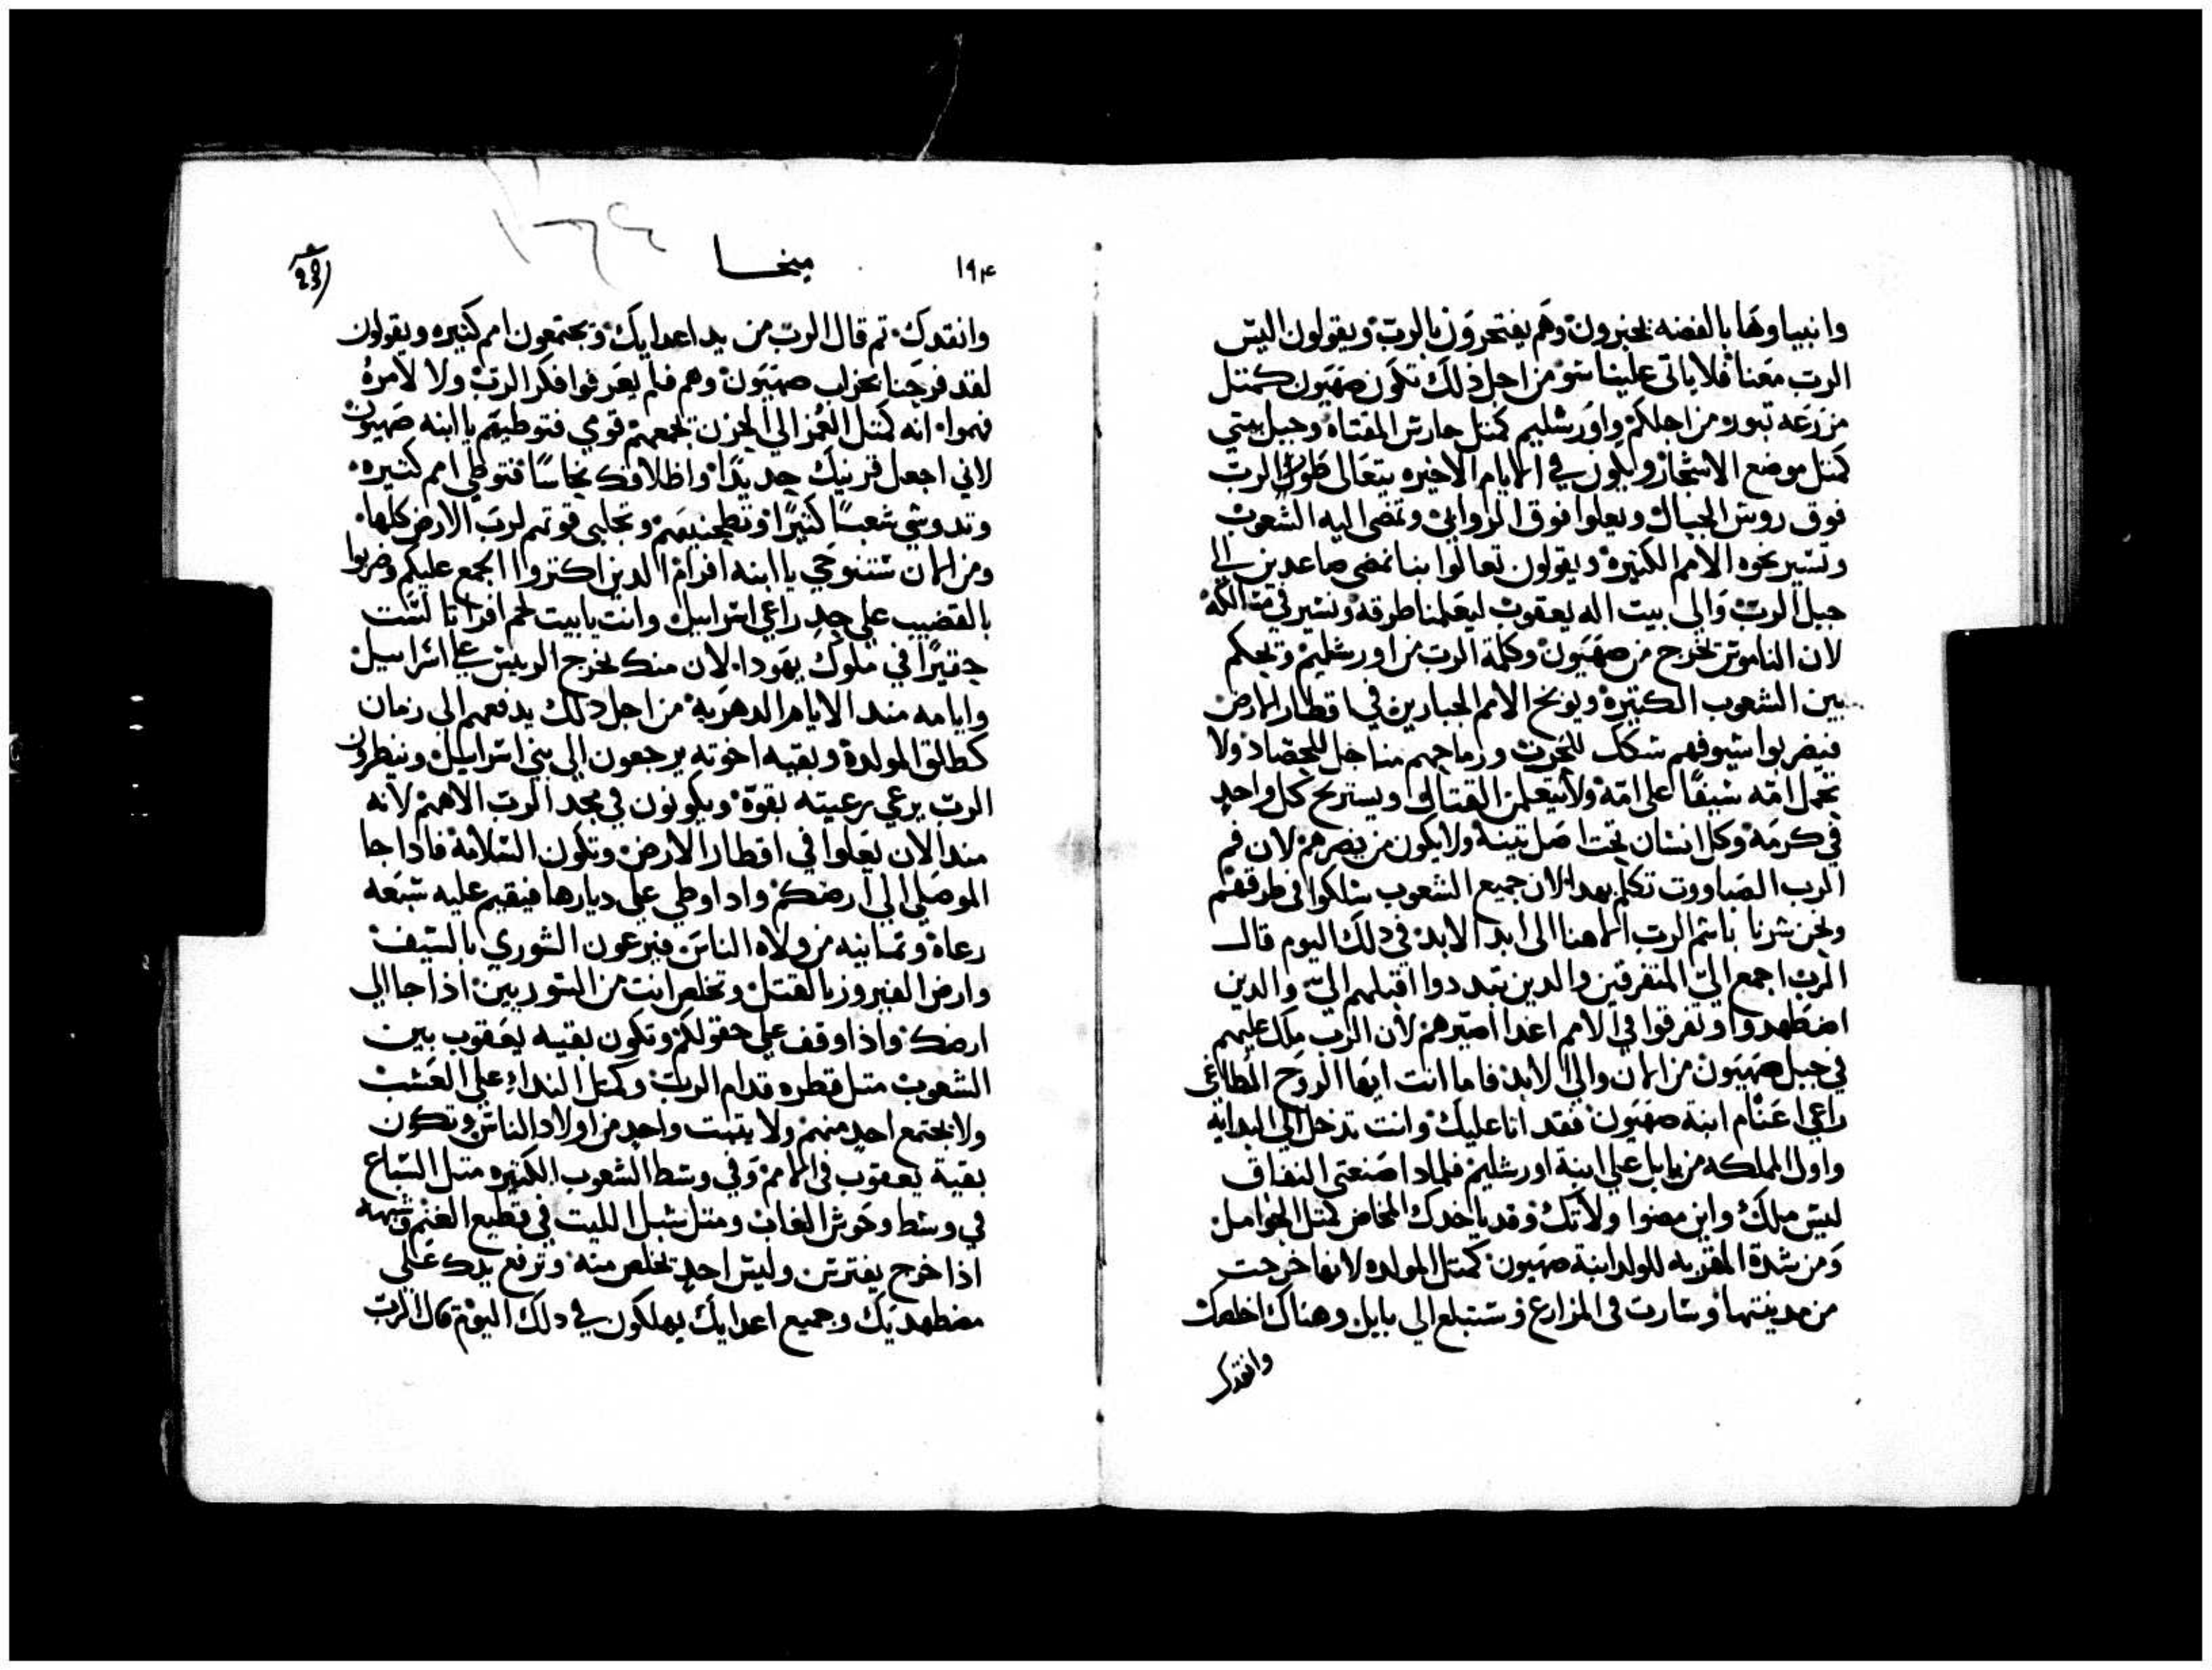 وانبياوها بالفضه يخبرون وهم يفتخرون بالرب ويقولون اليس
الرب معنا فلا ياتي علينا سو من اجل ذلك تكون صهيون كمتل
مزرعه تبور من اجلكم واورشليم كمتل حارس المقتاه وجبل بيتي
كمتل موضع الاشجار ويكون في الايام الاخيره يتعالى طور الرب
فوق روس الجبال ويعلوا فوق الروابي وتمضي اليه الشعوب
وتسير نحوه الامم الكتيره ويقولون تعالوا بنا نمضي صاعدين الي
جبل الرب والى بيت اله يعقوب ليعلمنا طرقه ونسير في مسالكه
لان الناموس يخرج من صهيون وكلمة الرب من اورشليم وتحكم
بين الشعوب الكتيره ويوبخ الامم الجبارين في اقطار الارض
فيضربوا سيوفهم سكك للحرث ورماحهم مناجل للحصاد ولا
تحمل امه سيفا على امه ولا يتعلمن القتال ويستريح كل واحد
في كرمه وكل انسان تحت اصل تينه ولا يكون من يضرهم لان فم
الرب الصباووت تكلم بهدا لان جميع الشعوب سلكوا في طرقهم
ونحن سرنا باسم الرب الاهنا الى ابد الابد في دلك اليوم قال
الرب اجمع الي المتفرقين والدين تبددوا اقبلهم الي والدين
اضطهدوا وتفرقوا في الامم اغدا اصيرهم لان الرب ملك عليهم
في جبل صهيون من الان والى الابد فاما انت ايها الروح المطاغي
راعي اغنام ابنة صهيون فقد اتا عليك وانت تدخل الى البدايه
واول المملكه من بابل علي ابنة اورشليم فلمادا صنعتي النفاق
ليس ملك وابن مضوا ولاتك وقد ياخدك المخاض كمتل الحوامل
ومن شدة المقربه للولد ابنة صهيون كمتل المولده لانها خرجت
من مدينتها وسارت في المزارع وستبلع الي بابل وهناك اخلصك
وانقدك
١٩٤
ميخا
وانقدك تم قال الرب من يد اعدايك وتجتمعون امم كثيره ويقولون
لقد فرحنا بخراب صهيون وهم فلم يعرفوا فكر الرب ولا لامره
فهموا انه كمتل الغمز الى الجرن يجمعهم قومي فتوطيهم يا ابنه صهيون
لاني اجعل قرنيك حديدًا واظلافك نحاسًا فتوطي امم كتيره
وتدوشي شعبًا كثيرًا وتطحنيهم وتجلبي قوتهم لرب الارض كلها
ومن الان ستنوحي يا ابنه افرام الدين اكتروا الجمع عليكم وضربوا
بالقضيب على خد راعي اسراييل وانت يا بيت لحم افراتا لست
حقيرًا في ملوك يهودا لان منك يخرج الرييس علي اسراييل
وايامه مند الايام الدهريه من اجل دلك يدفعهم الى زمان
كطالق المولدة وبقيه اخوته يرجعون الى بني اسراييل وينظرون
الرب يرعي رعيته بقوة ويكونون في مجد الرب الاههم لانه
مند الان يعلوا في اقطار الارض وتكون السلامة فادا جا
الموصلي الي ارضكم واد اوطي علي ديارها فيقيم عليه سبعه
رعاة وتمانيه من ولاه الناس فيرعون السوري بالسيف
وارض الفيروز بالقتل وتخلص انت من السوريين اذا جا الي
ارضك واذا وقف علي حقولكم وتكون بقيه يعقوب بين
الشعوب متل قطره قدام الرب وكمتل الندا علي العشب
ولا يجتمع احد منهم ولا يتبت واحد من اولاد الناس وتكون
بقية يعقوب في الامم وفي وسط الشعوب الكتيره متل السباع
في وسط وحوش الغاب ومتل شبل الليت في قطيع الغنم وشبهه
اذا خرج يفترس وليس احد يخلص منه وترفع يدك علي
مضطهديك وجميع اعدايك يهلكون في دلك اليوم قال الرب